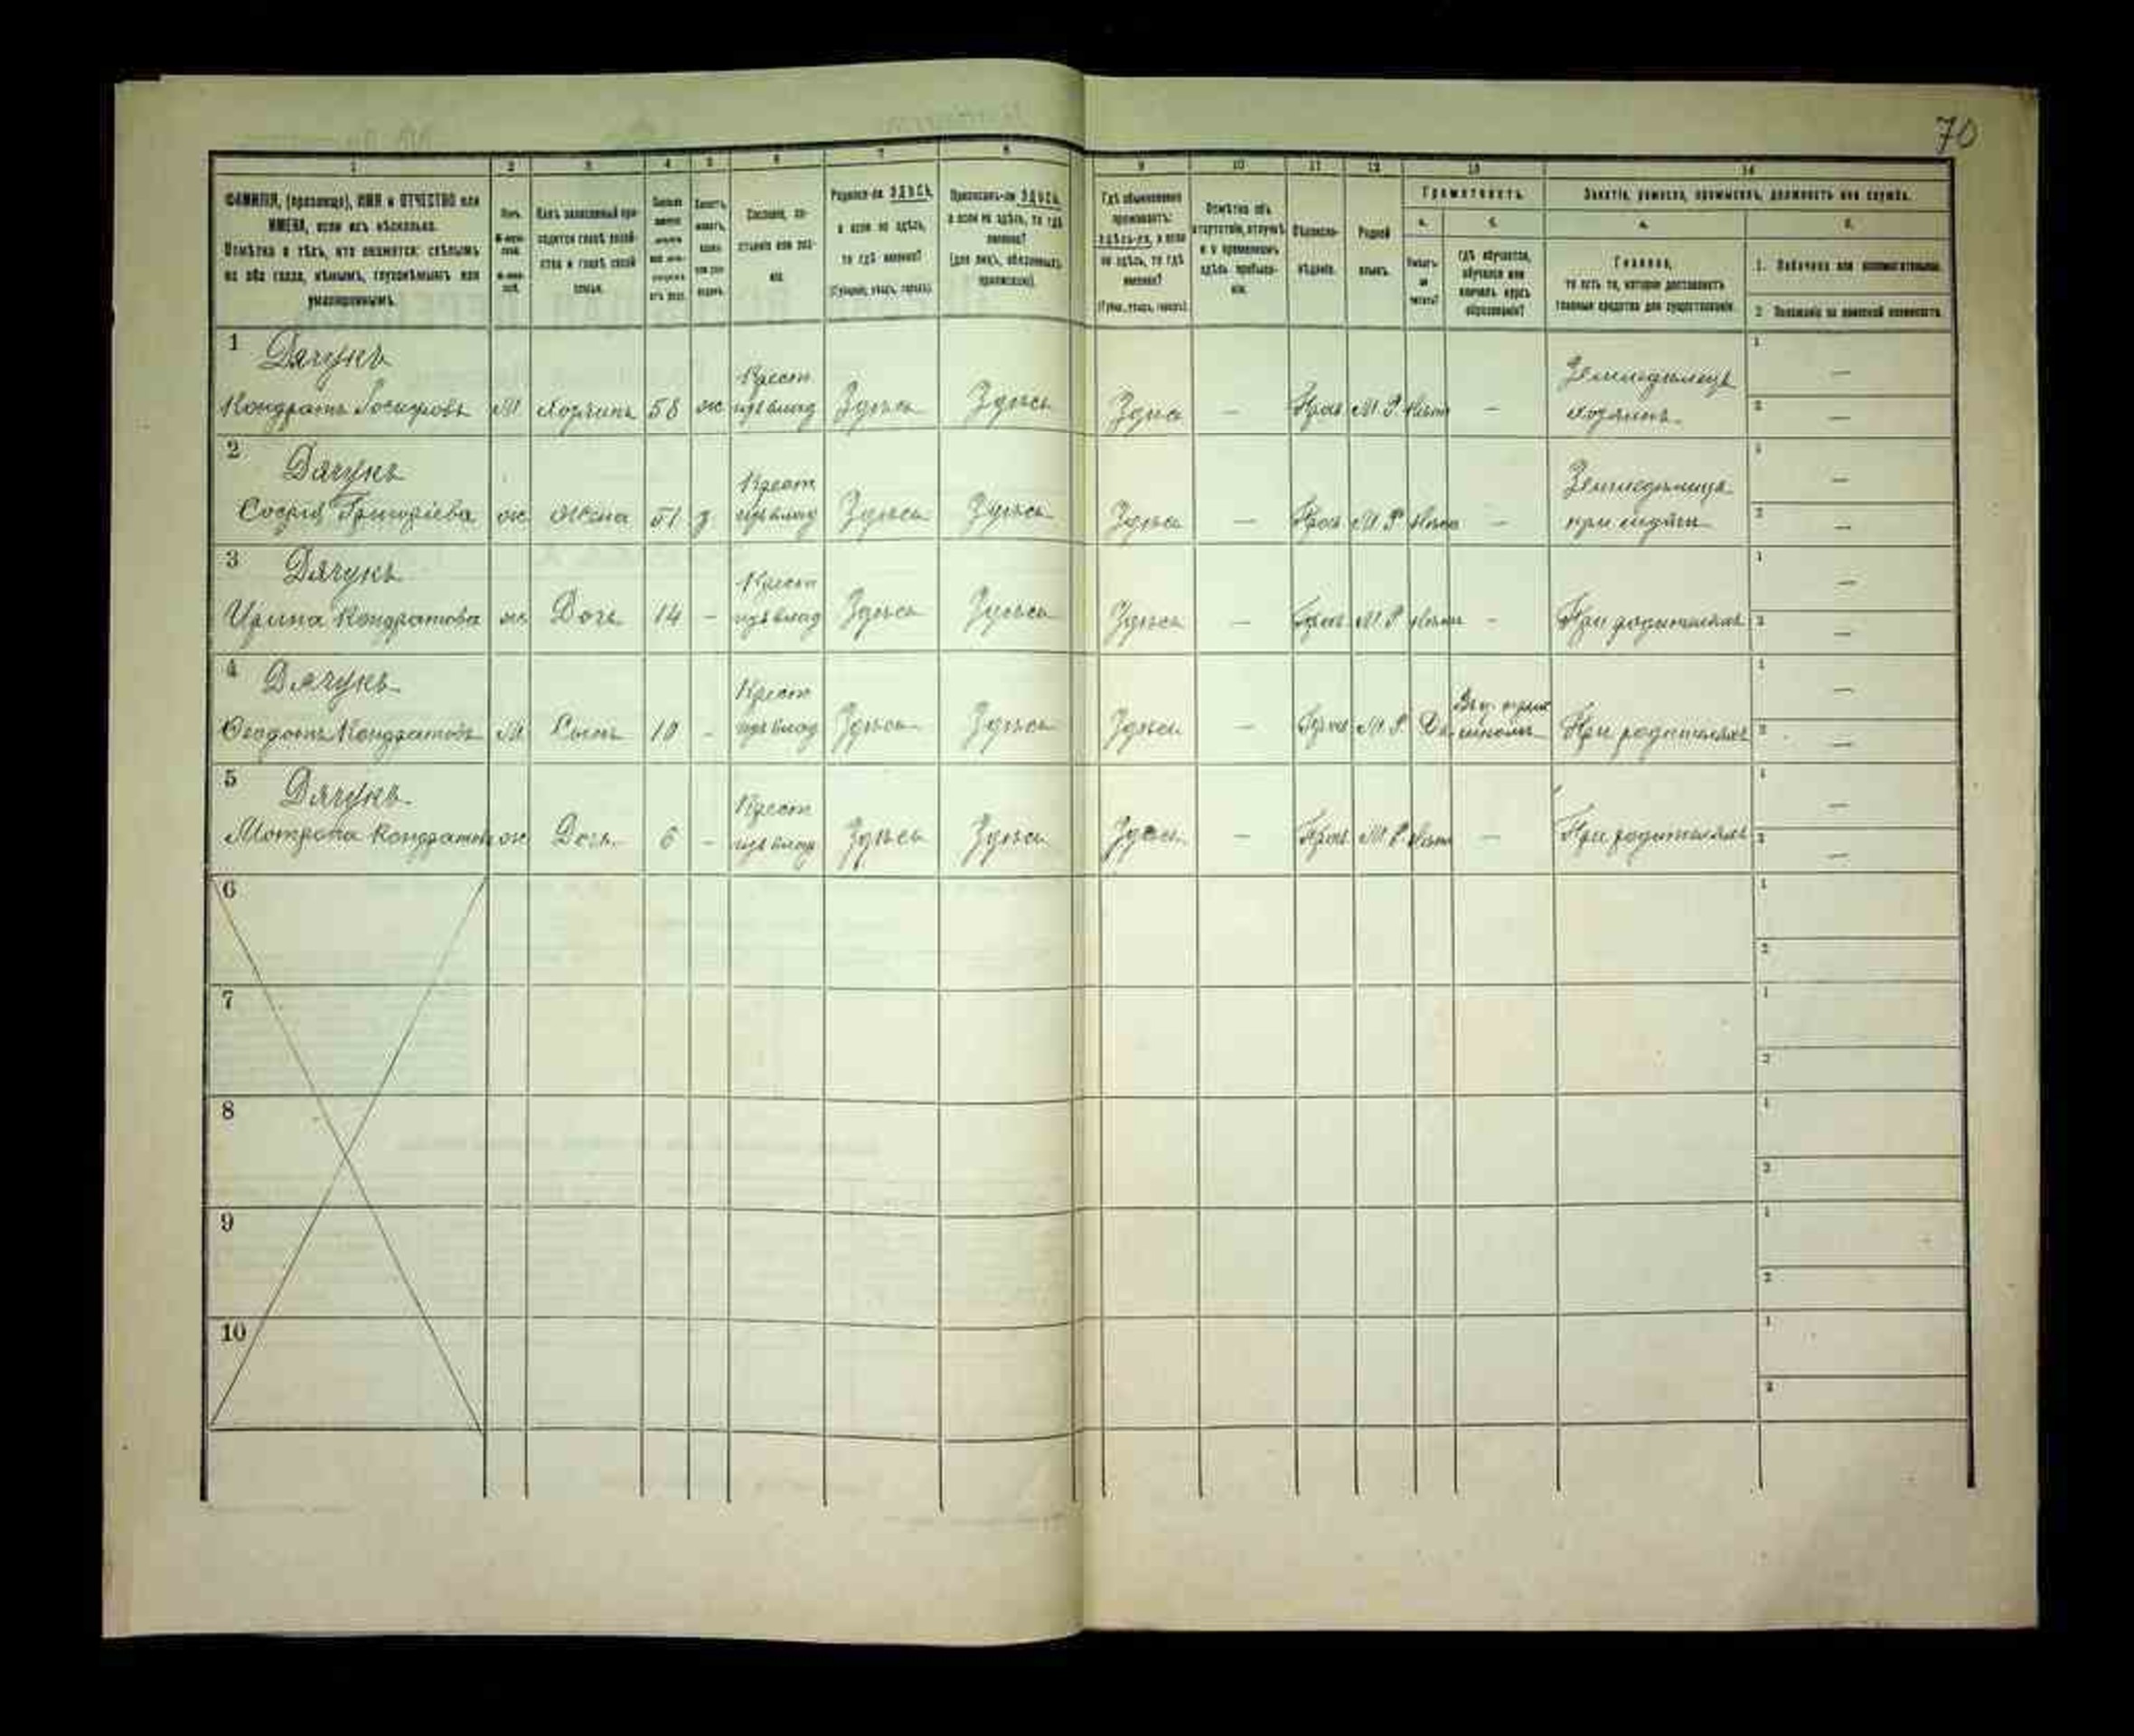 70
1 2 3 4 5 6 7 8 9 10 11 12 13 14
ФАМИЛІЯ, (прозвище), ИМЯ и ОТЧЕСТВО или
ИМЕНА, если ихъ нѣсколько.
Отмѣтка о тѣхъ, кто окажется: слѣпымъ
на оба глаза, нѣмымъ, глухонѣмымъ или
умалишеннымъ.
Родился-ли ЗДѢСЬ,
а если не здѣсь,
то гдѣ именно?
(Губернія, уѣздъ, городъ).
Приписанъ-ли ЗДѢСЬ,
а если не здѣсь, то гдѣ
именно?
(для лицъ, обязанныхъ
припискою).
Гдѣ обыкновенно
проживаетъ:
здѣсь-ли, а если
не здѣсь, то гдѣ
именно?
(Губер., уѣздъ, городъ).
Отмѣтка объ
отсутствіи, отлучкѣ
и о временномъ
здѣсь пребыва-
ніи.
Вѣроиспо-
вѣданіе.
Родной
языкъ.
Грамотность.
а. б.
Умѣетъ
ли
читать?
гдѣ обучается,
обучался или
кончилъ курсъ
образованія?
Занятіе, ремесло, промыселъ, должность или служба.
а. б.
Главное,
то есть то, которое доставляетъ
главныя средства для существованія.
1. Побочное или вспомогательное.
2. Положеніе по воинской повинности.
1 Дячукъ
Кондратъ Іосифовъ М Хозяинъ 58 ж Крест. Здѣсь Здѣсь Здѣсь — Прав М. Р. Нѣтъ — Земледѣлецъ хозяинъ 1 — 2 —
2 Дячукъ
Софія Григоріева ж Жена 51 з Крест Здѣсь Здѣсь Здѣсь — Прав М Р Нѣтъ — Земледѣлица при мужѣ 1 — 2 —
3 Дячукъ
Ирина Кондратова ж Дочь 14 — Крест Здѣсь Здѣсь Здѣсь — Прав М Р Нѣтъ — При родителяхъ 1 — 2 —
4 Дячукъ
Ѳеодотъ Кондратовъ М Сынъ 10 — Крест Здѣсь Здѣсь Здѣсь — Прав М. Р. Да школѣ При родителяхъ 1 — 2 —
5 Дячукъ
Мотрона Кондратов ж Дочь 6 — Крест Здѣсь Здѣсь Здѣсь — Прав М. Р. Нѣтъ — При родителяхъ 1 — 2 —
6 1 2
7 1 2
8 1 2
9 1 2
10 1 2